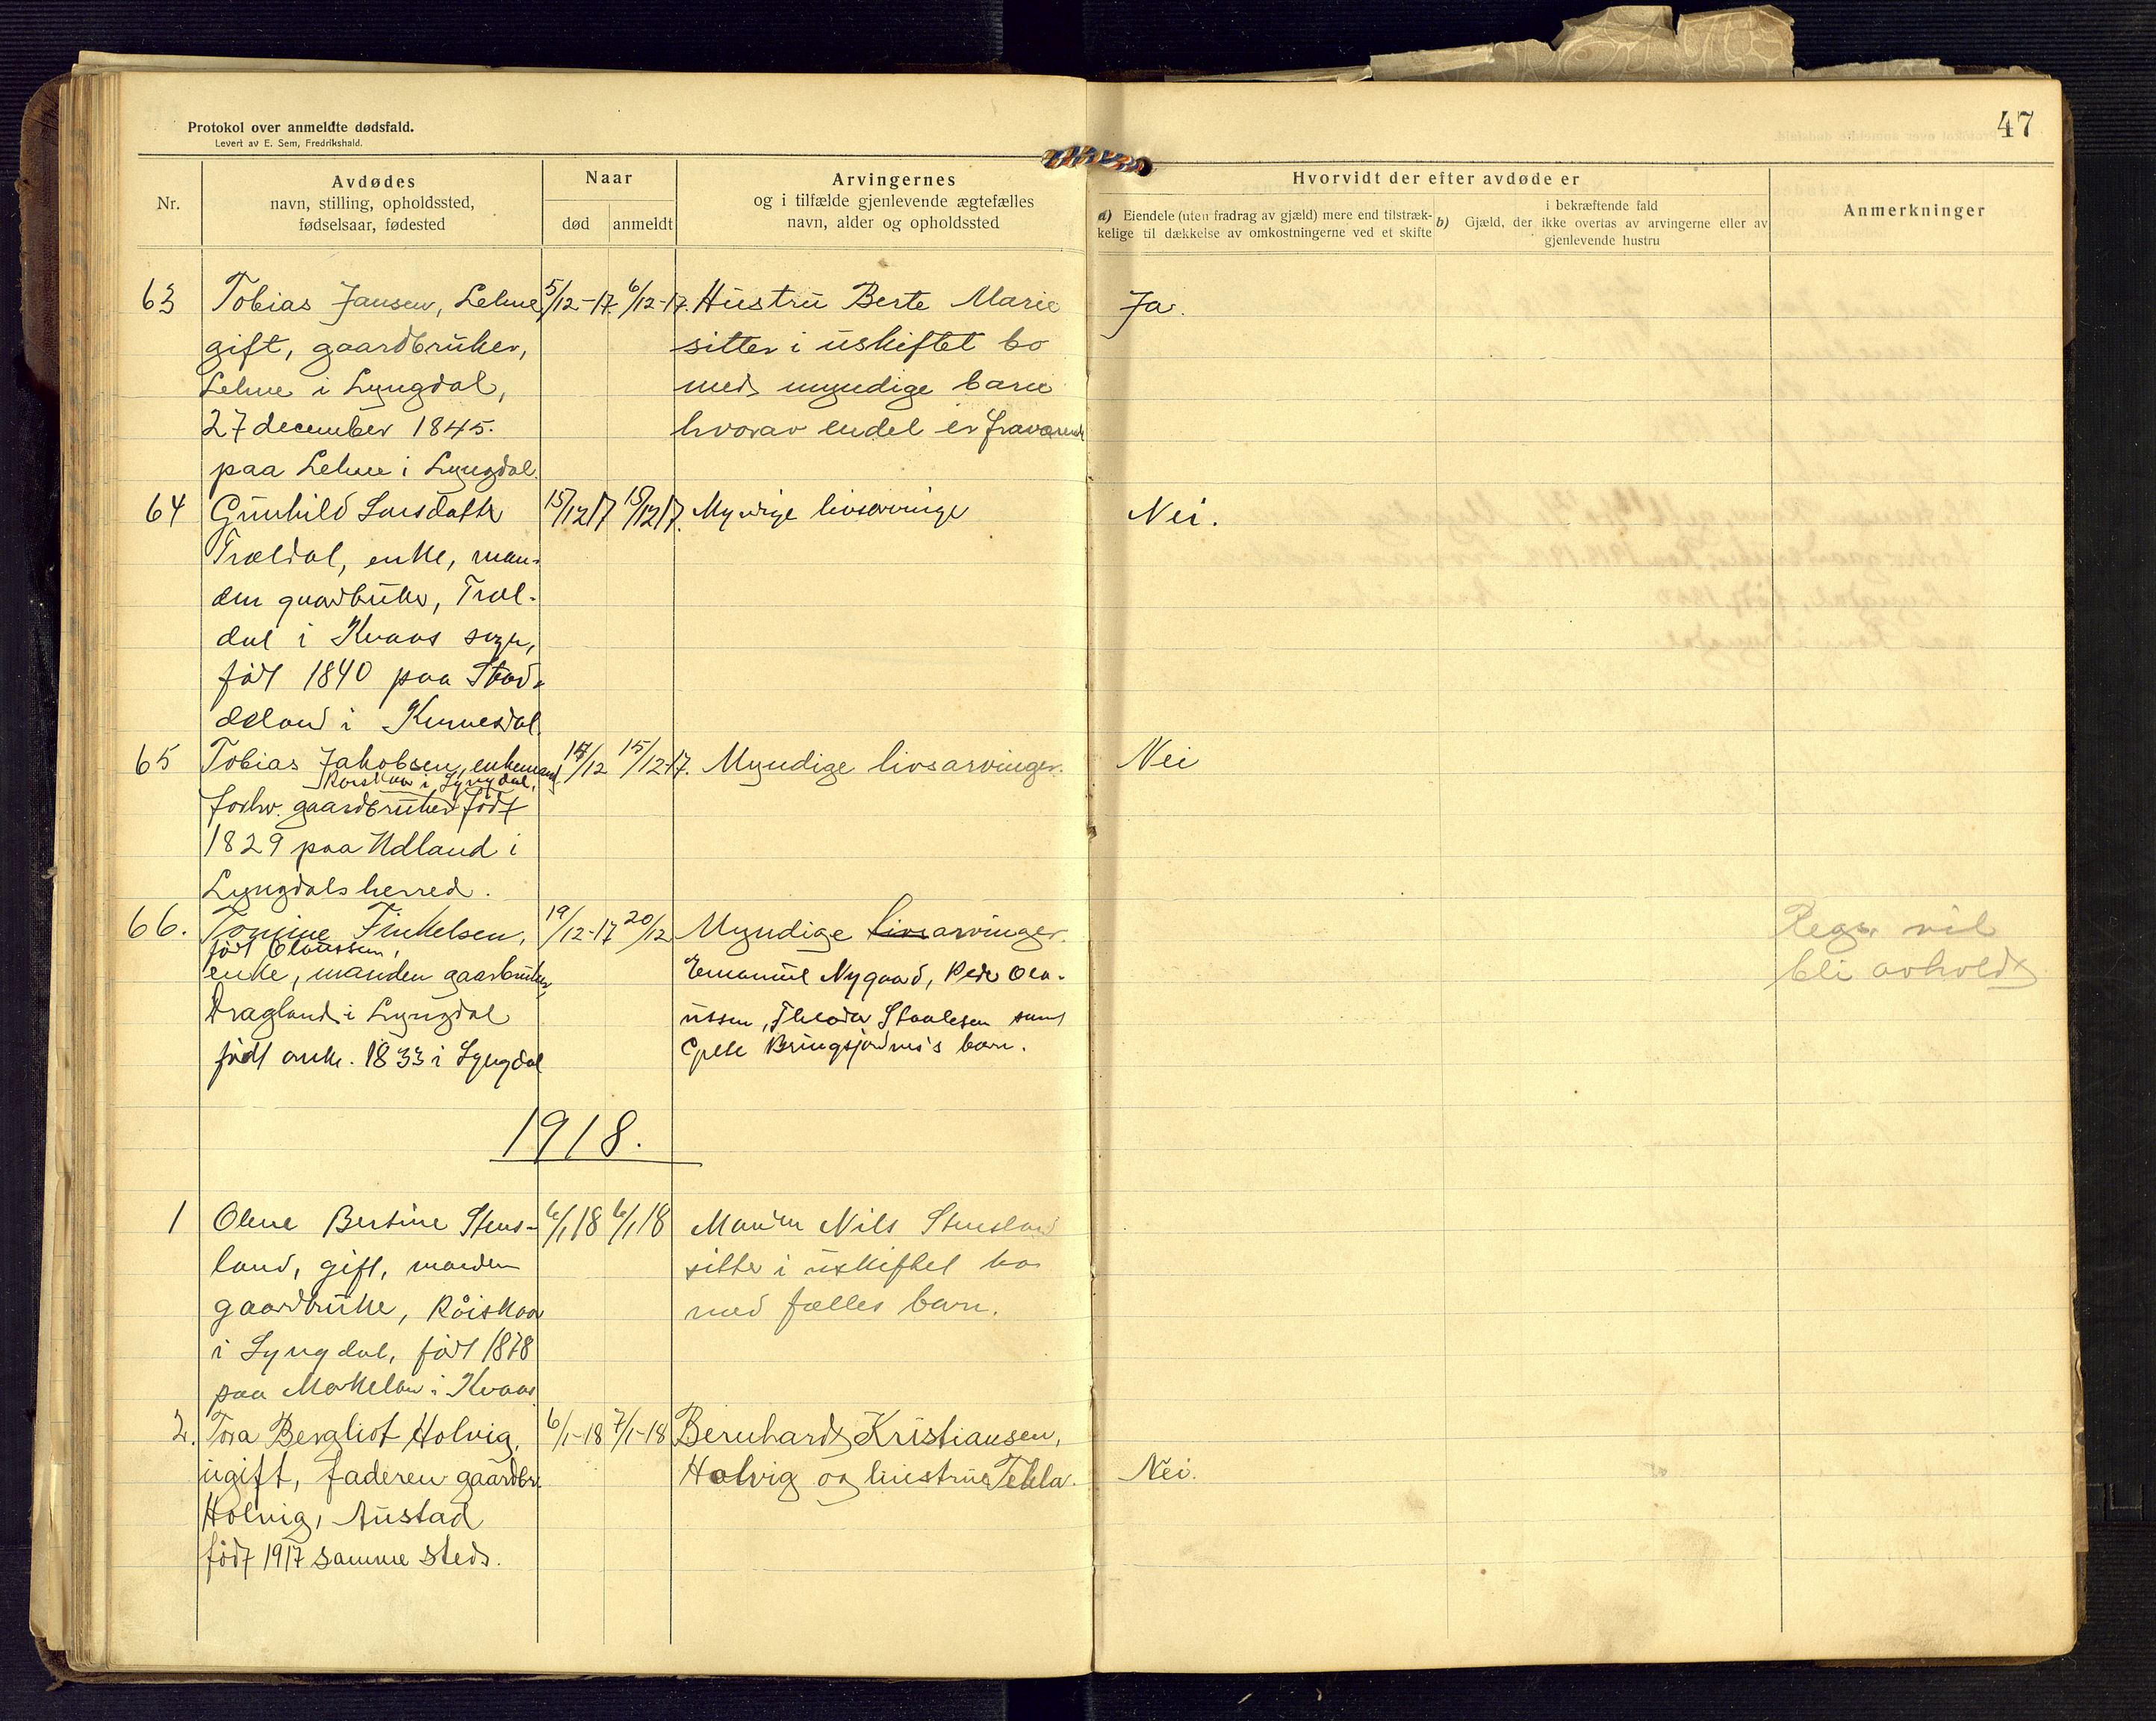 47
Protokol over anmeldte dødsfald.
Levert av E. Sem, Fredrikshald.
Nr.
Avdødes
navn, stilling, opholdssted,
fødselsaar, fødested
Naar
død anmeldt
Arvingernes
og i tilfælde gjenlevende ægtefælles
navn, alder og opholdssted
Hvorvidt der efter avdøde er
a) Eiendele (uten fradrag av gjæld) mere end tilstræk-
kelige til dækkelse av omkostningerne ved et skifte
b) Gjæld, der i bekræftende fald
ikke overtas av arvingerne eller av
gjenlevende hustru
Anmerkninger
63 Tobias Jansen, Lehne 5/12-17. 6/12-17. Hustru Berte Marie Ja.
gift, gaardbruker, sitter i uskiftet bo
Lehne i Lyngdal, med myndige barn
27 december 1845. hvorav endel er fraværende
paa Lehne i Lyngdal.
64 Gunhild Larsdatter 15/12 17 15/12 17. Myndige livsarvinge Nei.
Trældal, enke, man-
den gaardbruker, Træl-
dal i Kvaas sogn,
født 1840 paa
i
65 Tobias Jakobsen, enkemand 14/12 15/12-17. Myndige livsarvinger. Nei
i Lyngdal,
forhv. gaardbruker født
1829 paa Udland i
Lyngdals herred.
66. Tomine Finkelsen, 19/12-17 20/12 Myndige livsarvinger. Regs. vil
født Olaussen,
enke, manden gaarbruker, Emanuel Nygaard, Peder Ola- bli avholdt
Dragland i Lyngdal ussen, Theodor Staalesen samt
født omk. 1833 i Lyngdal Bringsjordnes's barn.
1918.
1 Olene Bertine Stens- 6/1 18 6/1 18 Manden Nils Stensland
land, gift, manden sitter i uskiftet bo
gaardbruker, Røiskaar med fælles barn.
i Lyngdal, født 1878
paa i Kvaas
2. Tora Bergliot Holvig, 6/1-18 7/1-18 Bernhard Kristiansen,
ugift, faderen gaardbr. Holvig og hustrue Tekla. Nei.
Holvig, Austad
født 1917 samme steds.